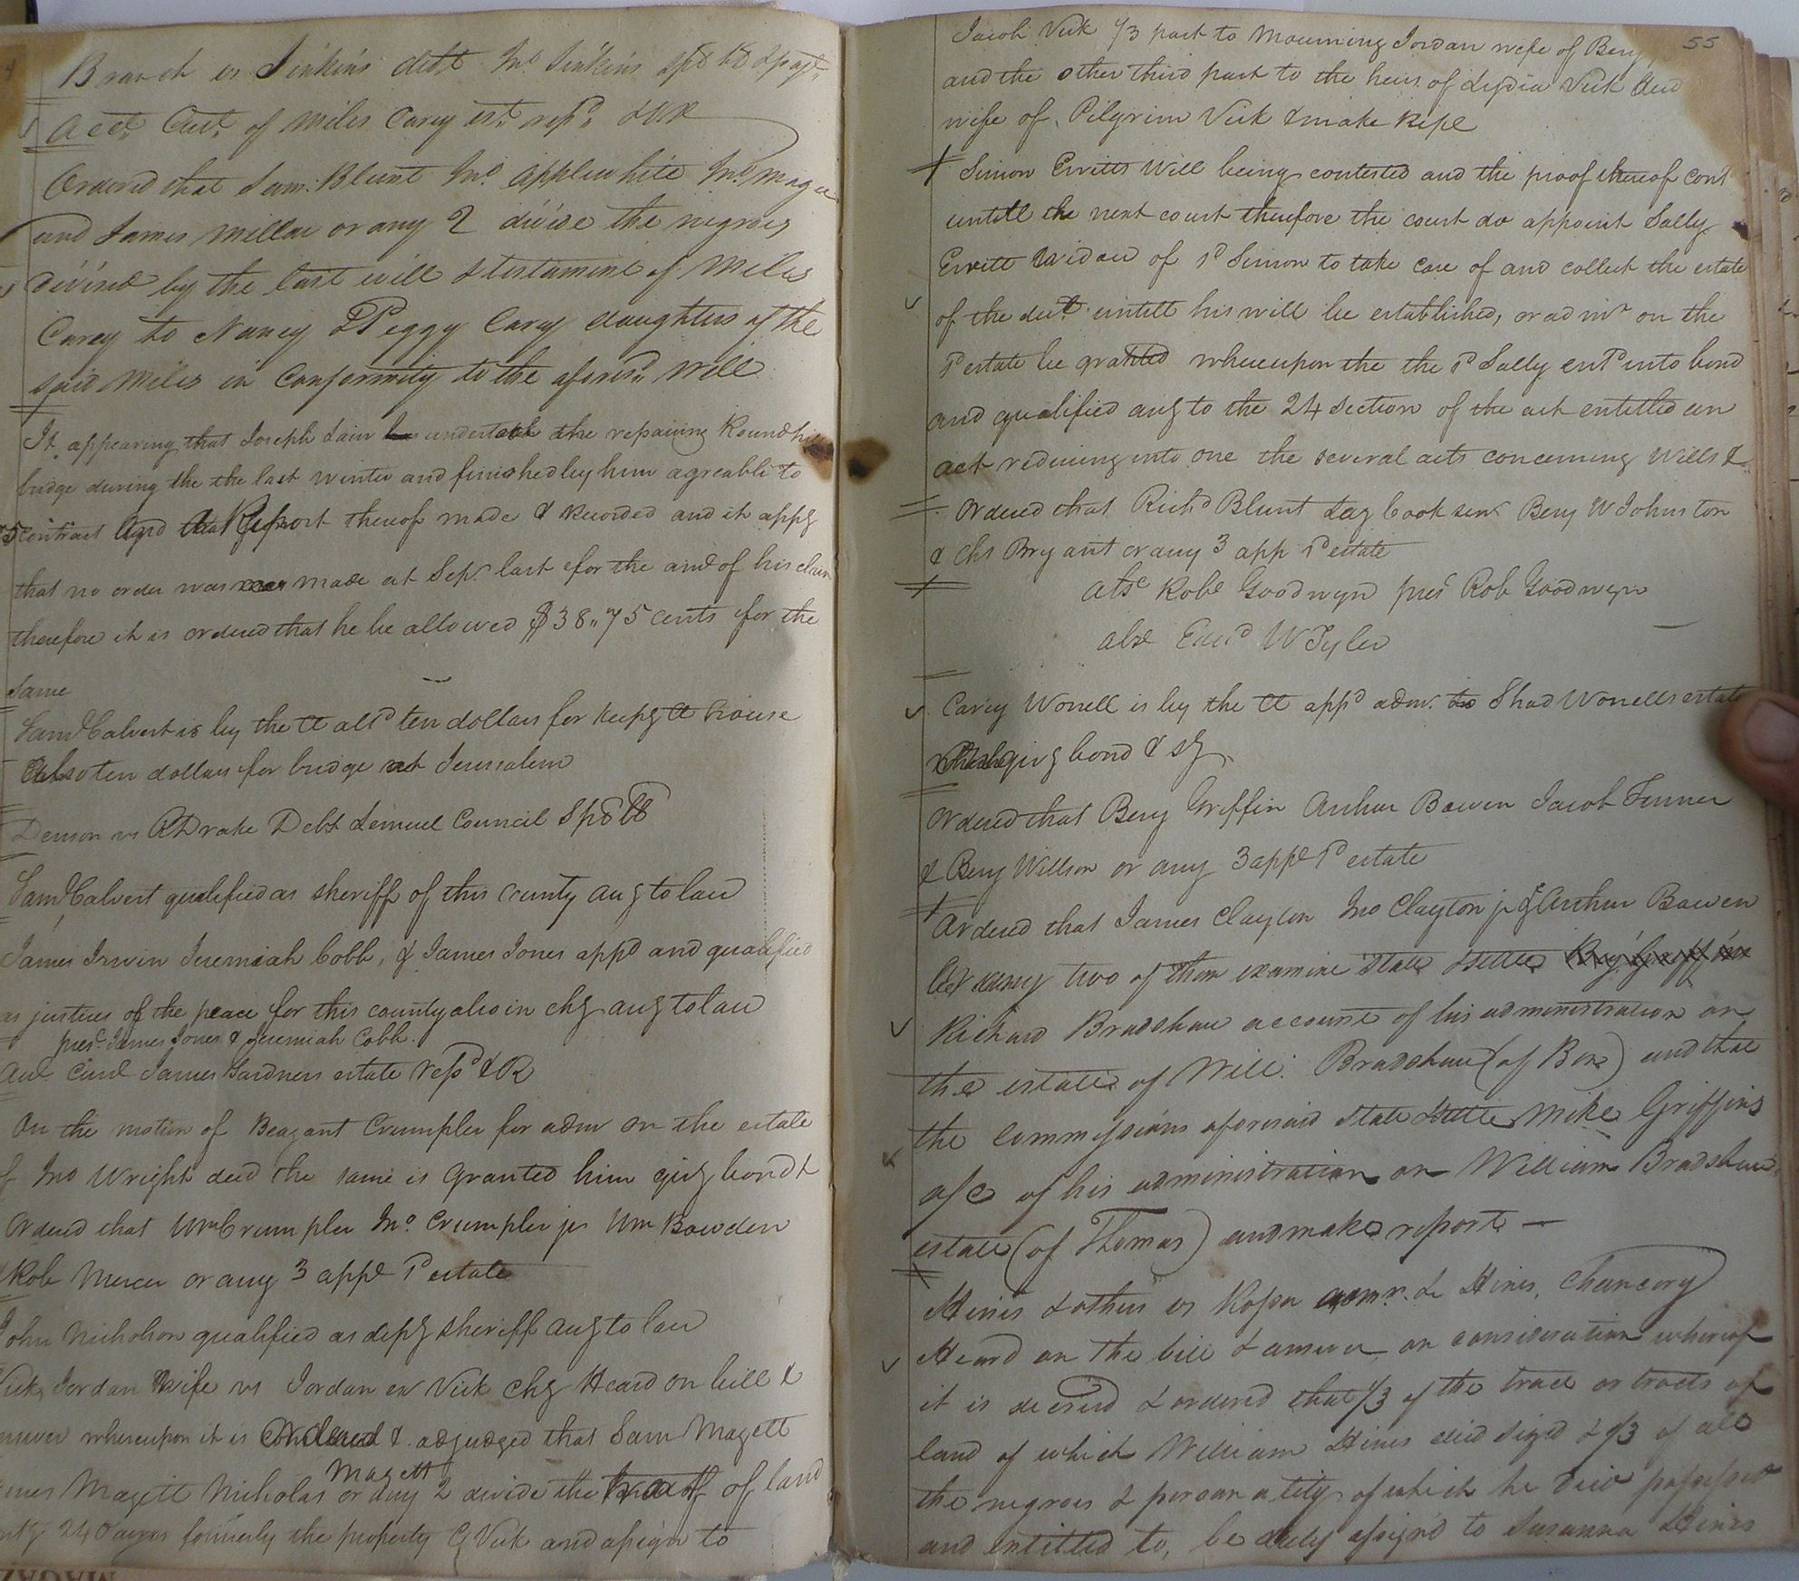 Branch vs Jinkins debt Jno Jinkins
Acct Curt of Miles Carey est. retd &R
Ordered that Sam: Blunt Jno Applewhite Jno Magee
and James Millar or any 2 divide the negroes
devised by the last will & testament of Miles
Carey to Nancy & Peggy Carey daughters of the
said Miles in Conformity to the aforesd will
It appearing that Joseph Lain undertook the repairing Roundhill
bridge during the the last winter and finished by him agreable to
contract and that Report thereof made & Recorded and it appg
that no order was made at Sepr last for the amt of his claim
therefore it is ordered that he be allowed $38"75 cents for the
same
Saml Calvert is by the Ct ald ten dollars for keepg Ct house
Also ten dollars for bridge at Jerusalem
Denson vs R Drake Debt Lemuel Council
Saml Calvert qualified as sheriff of this county acg to law
James Irwin Jeremiah Cobb, & James Jones appd and qualified
as justices of the peace for this county also in chy acg to law
pres. James Jones & Jeremiah Cobb.
James Gardners estate retd &R
On the motion of Beazant Crumpler for adm on the estate
of Jno Wright decd the same is granted him givg bond &
Ordered that Wm Crumpler Jno Crumpler jr Wm Bowden
Rob Mercer or any 3 appe sd estate
John Nicholson qualified as depy sheriff acg to law
Vick, Jordan & wife vs Jordan ex Vick chy Heard on bill &
answer whereupon it is & adjudged that Sam Magett
Magett
James Magett Nicholas or any 2 divide the of land
240 acres formerly the property of Vick and assign to
55
Jacob Vick 1/3 part to Mourning Jordan wife of Benj
and the other third part to the heirs of Lydia Vick decd
wife of Pilgrim Vick & make Repe
Simon Evritts Will being contested and the proof thereof cont
untill the next court therefore the court do appoint Sally
Evritt Widow of sd Simon to take care of and collect the estate
of the dect untill his will be established, or admr on the
sd estate be granted whereupon the the sd Sally entd into bond
and qualified acg to the 24 section of the act entitled an
act reducing into one the several acts concerning Wills &
Ordered that Richd Blunt Laz Cook senr Benj W Johnston
& Chs Bryant or any 3 app sd estate
abst Robt Goodwyn prest Rob Goodwyn
abst Edwd W Tyler
Carey Worrell is by the Ct appd admr to Shad Worrells estate
givg bond & sy
Ordered that Benj Griffin Arthur Bowen Jacob Turner
& Benj Willson or any 3 appe sd estate
Ordered that James Clayton Jno Clayton jr & Arthur Bowen
or any two of them examine state & settle
Richard Bradshaw account of his administration on
the estate of Will: Bradshaw (of Ben) and that
the commissioners aforesaid state & settle Mike Griffins
a/c of his administration on William Bradshaws
estate (of Thomas) and make report —
Hines & others vs Hines, Chancery
Heard on the bill & answer on consideration whereof
it is decreed & ordered that 1/3 of the trace or tracts of
land of which William Hines died siezd & 1/3 of all
the negroes & personality of which he died possessed
and entitled to, be duly assign'd to Susanna Hines